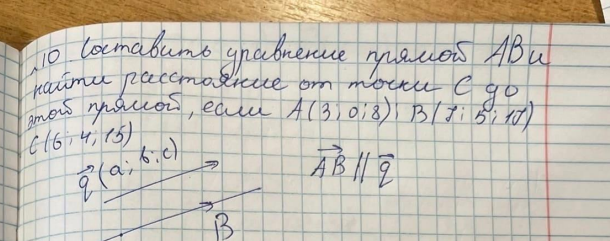 10. Составить уравнение прямой AB и
найти расстояние от точки C до
этой прямой, если A(3; 0; 8); B(7; 5; 11)
C(6; 4; 15)
q(a; b; c)
AB || q
B